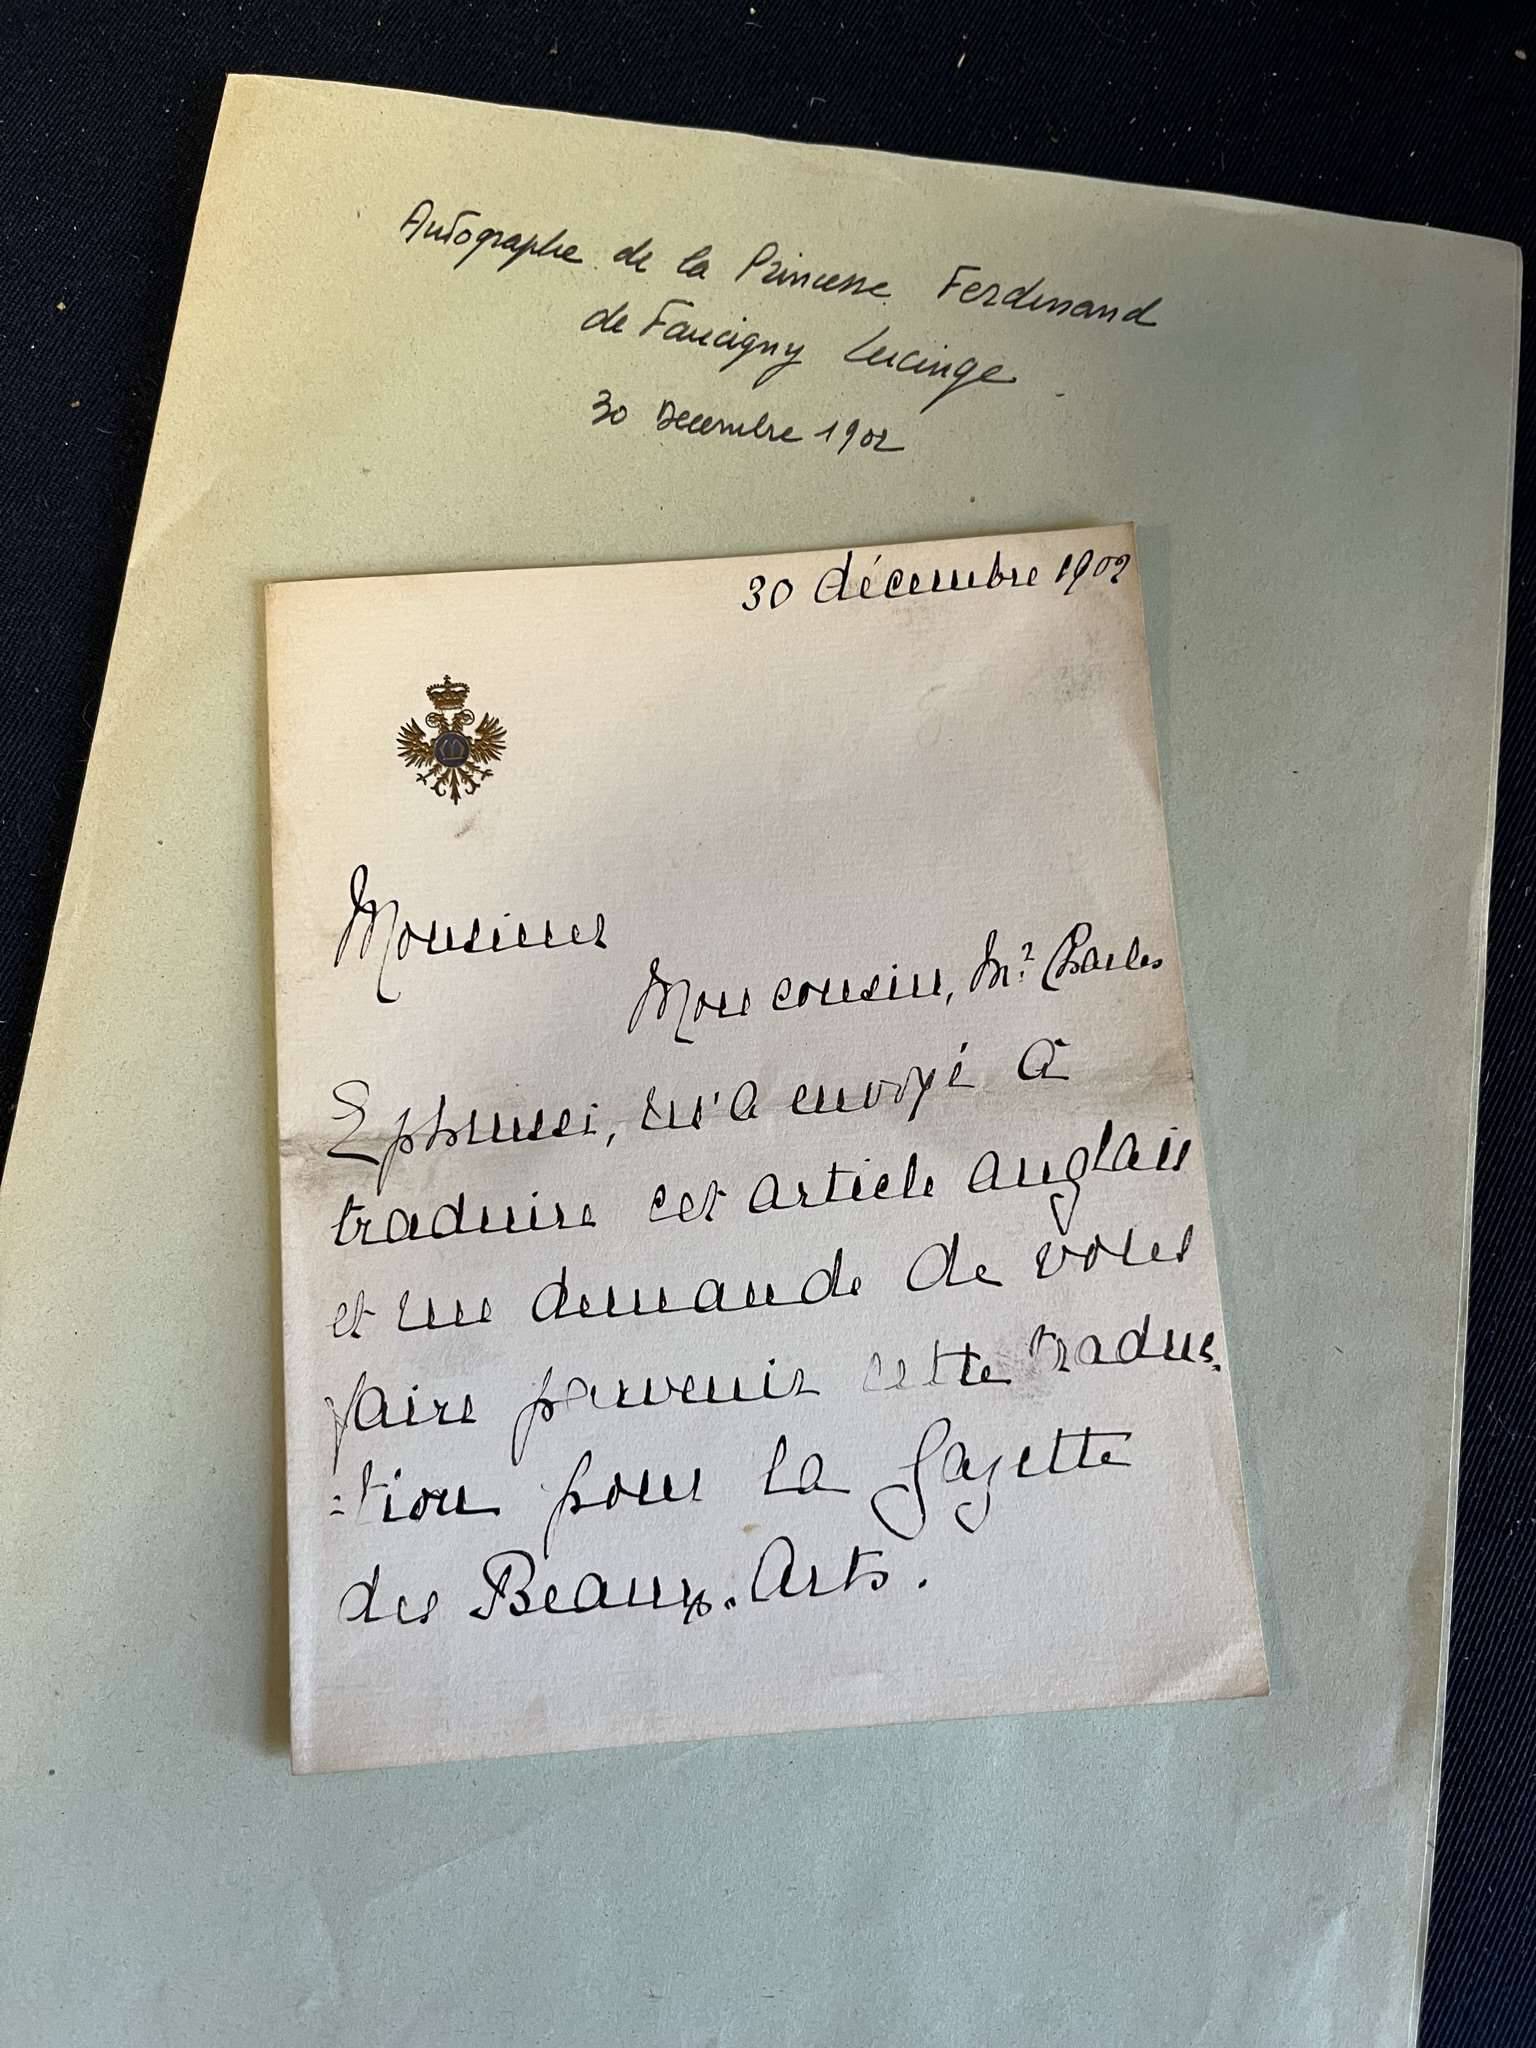 Autographe de la Princesse Ferdinand
de Faucigny Lucinge
30 Decembre 1902
30 décembre 1902
Monsieur
Mon cousin, Mr. Charles
Ephrussi, m'a envoyé à
traduire cet article anglais
et me demande de vous
faire parvenir cette traduc=
=tion pour la Gazette
des Beaux-Arts.